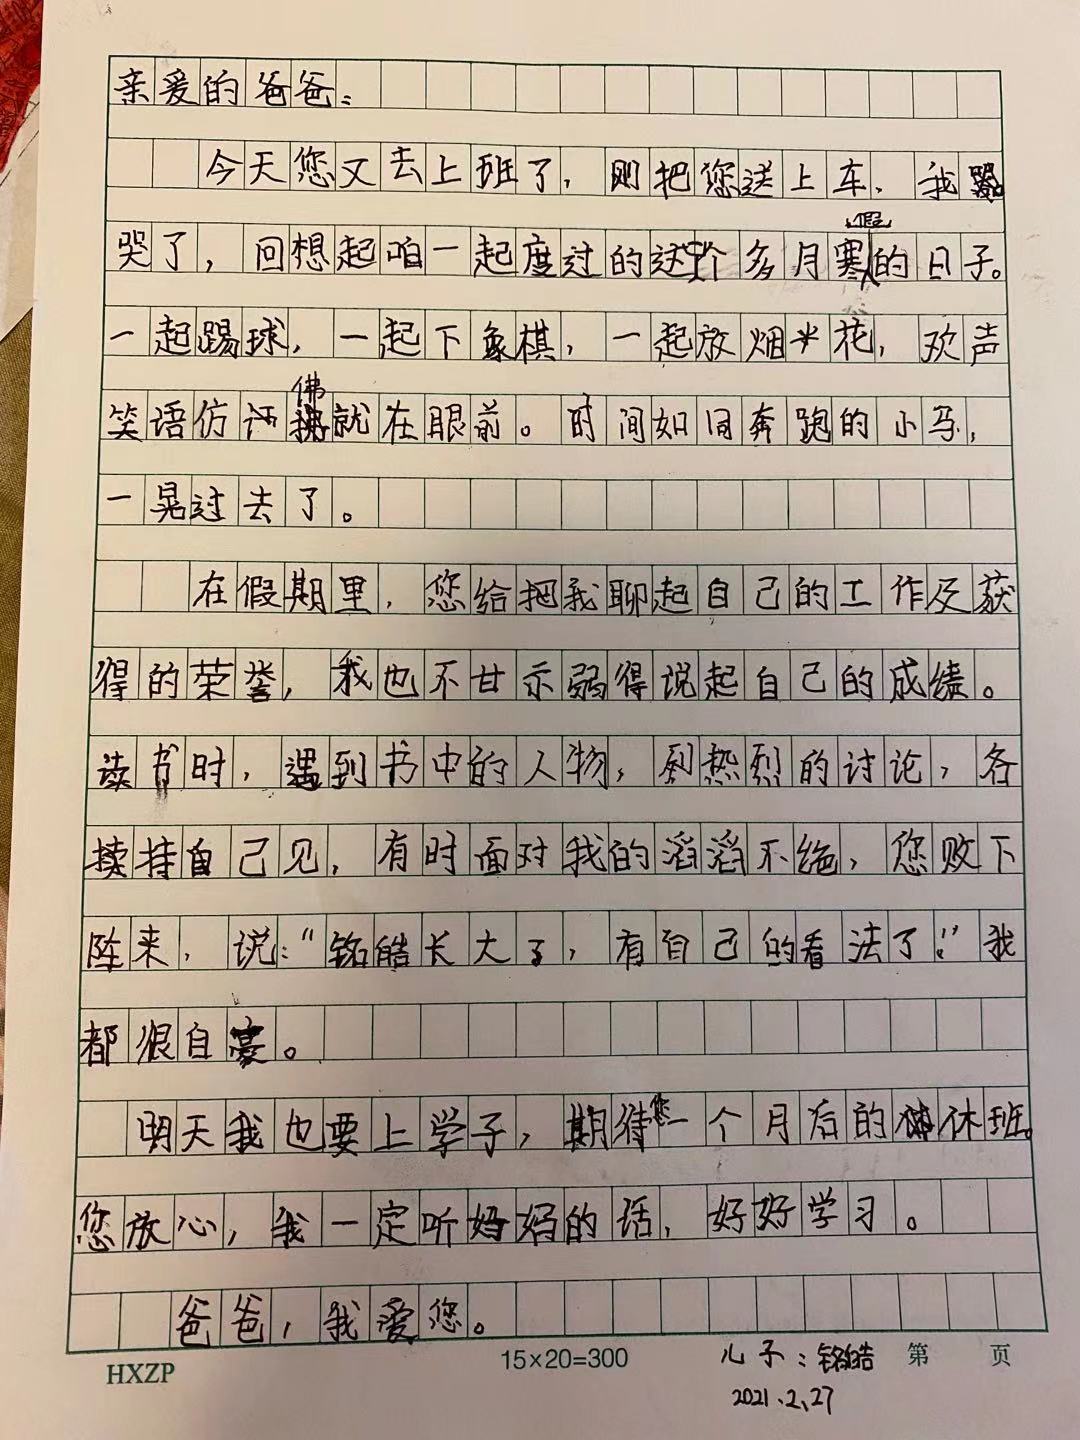 亲爱的爸爸：
今天您又去上班了，刚把您送上车，我
哭了，回想起咱一起度过的这个多月寒假的日子。
一起踢球，一起下象棋，一起放烟花，欢声
笑语仿佛就在眼前。时间如同奔跑的小马，
一晃过去了。
在假期里，您给把我聊起自己的工作及获
得的荣誉，我也不甘示弱得说起自己的成绩。
读书时，遇到书中的人物，热烈的讨论，各
持自己见，有时面对我的滔滔不绝，您败下
阵来，说：“铭皓长大了，有自己的看法了！”我
都很自豪。
明天我也要上学子，期待您一个月后的休班。
您放心，我一定听妈妈的话，好好学习。
爸爸，我爱您。
HXZP 15×20=300 儿子：铭皓 第 页
2021.2.27